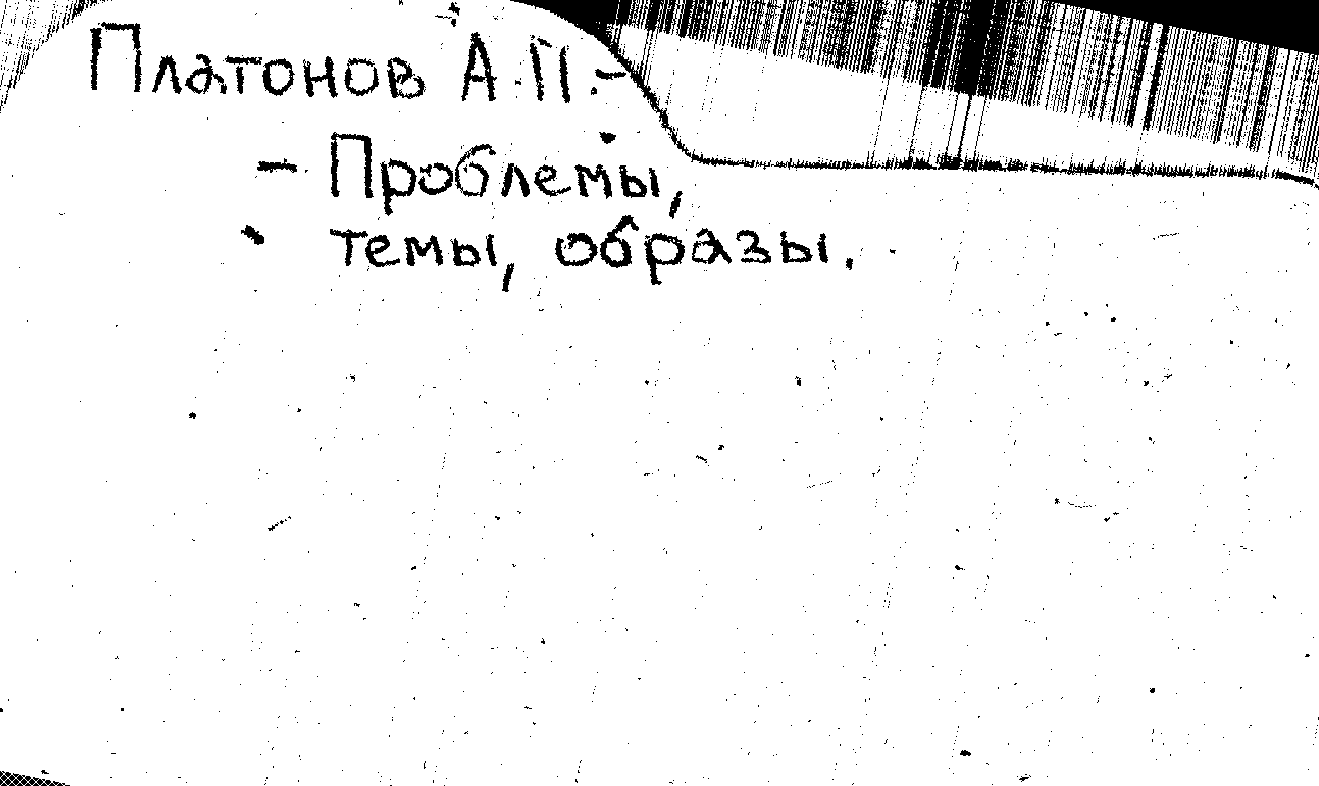 Платонов А.П. -
- Проблемы,
темы, образы.